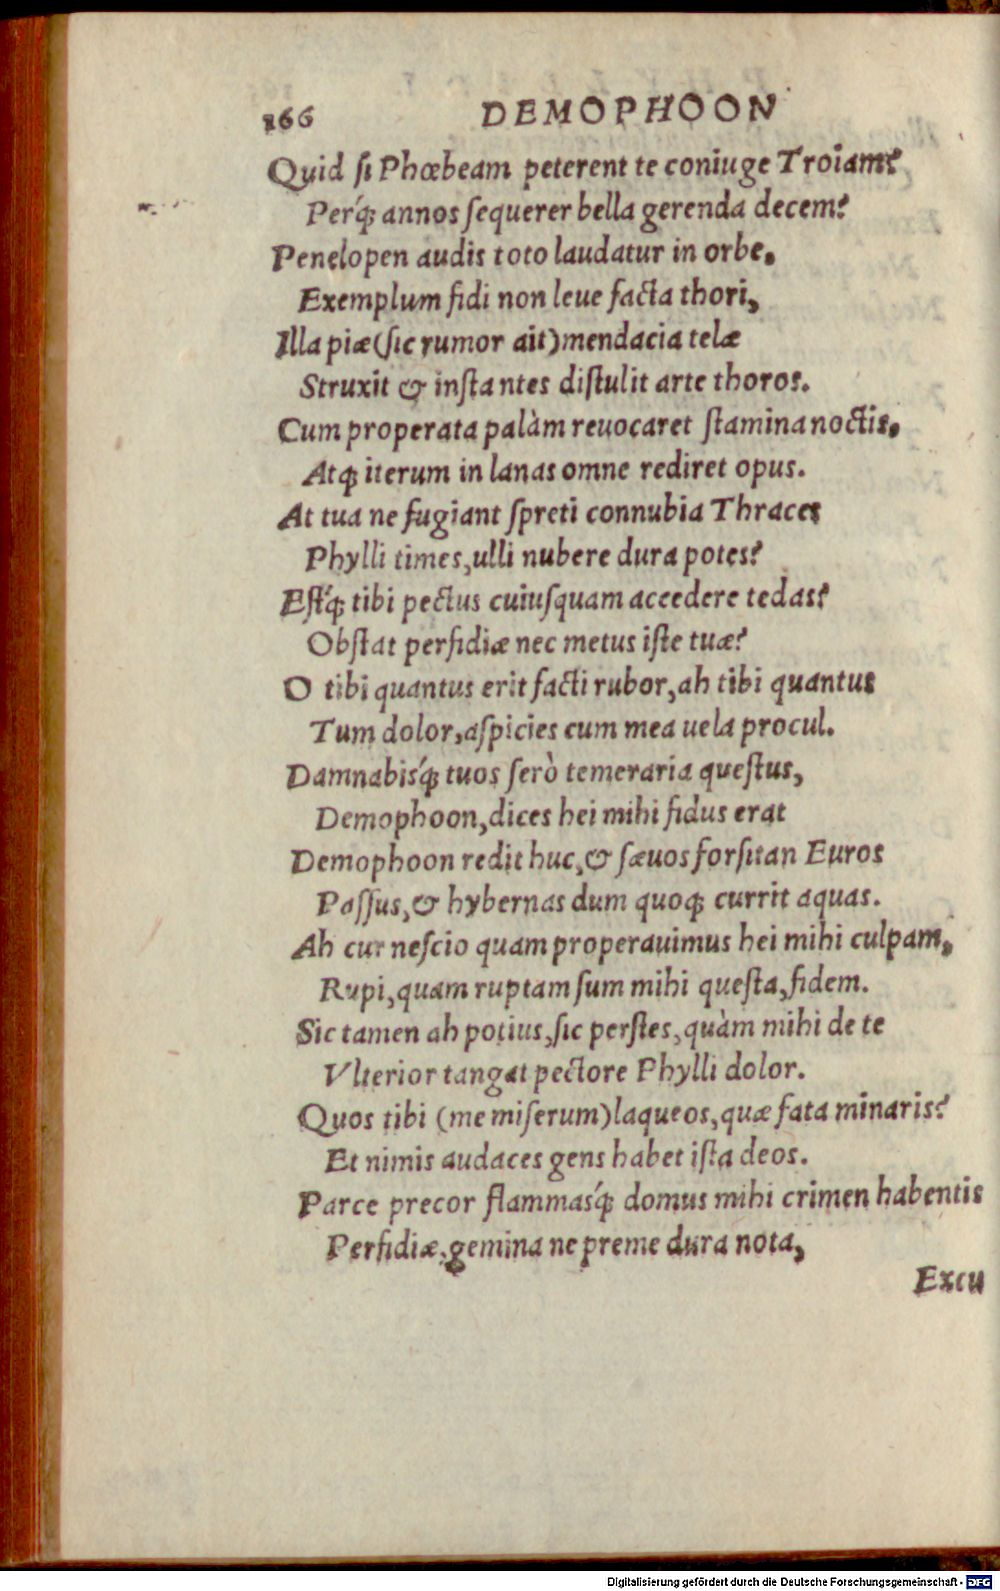 166 DEMOPHOON
Quid ſi Phœbeam peterent te coniuge Troiam?
Perq́; annos ſequerer bella gerenda decem?
Penelopen audis toto laudatur in orbe,
Exemplum fidi non leue facta thori,
Illa piæ (ſic rumor ait) mendacia telæ
Struxit & inſtantes diſtulit arte thoros.
Cum properata palàm reuocaret ſtamina noctis,
Atq; iterum in lanas omne rediret opus.
At tua ne fugiant ſpreti connubia Thraces
Phylli times, ulli nubere dura potes?
Eſtq́; tibi pectus cuiuſquam accedere tedas?
Obſtat perfidiæ nec metus iſte tuæ?
O tibi quantus erit facti rubor, ah tibi quantus
Tum dolor, aſpicies cum mea uela procul.
Damnabisq́; tuos ſerò temeraria queſtus,
Demophoon, dices hei mihi fidus erat
Demophoon redit huc, & ſæuos forſitan Euros
Paſſus, & hybernas dum quoq; currit aquas.
Ah cur neſcio quam properauimus hei mihi culpam,
Rupi, quam ruptam ſum mihi queſta, fidem.
Sic tamen ah potius, ſic perſtes, quàm mihi de te
Vlterior tangat pectore Phylli dolor.
Quos tibi (me miſerum) laqueos, quæ fata minaris?
Et nimis audaces gens habet iſta deos.
Parce precor flammasq́; domus mihi crimen habentis
Perfidiæ, gemina ne preme dura nota,
Excu
Digitalisierung gefördert durch die Deutsche Forschungsgemeinschaft - DFG